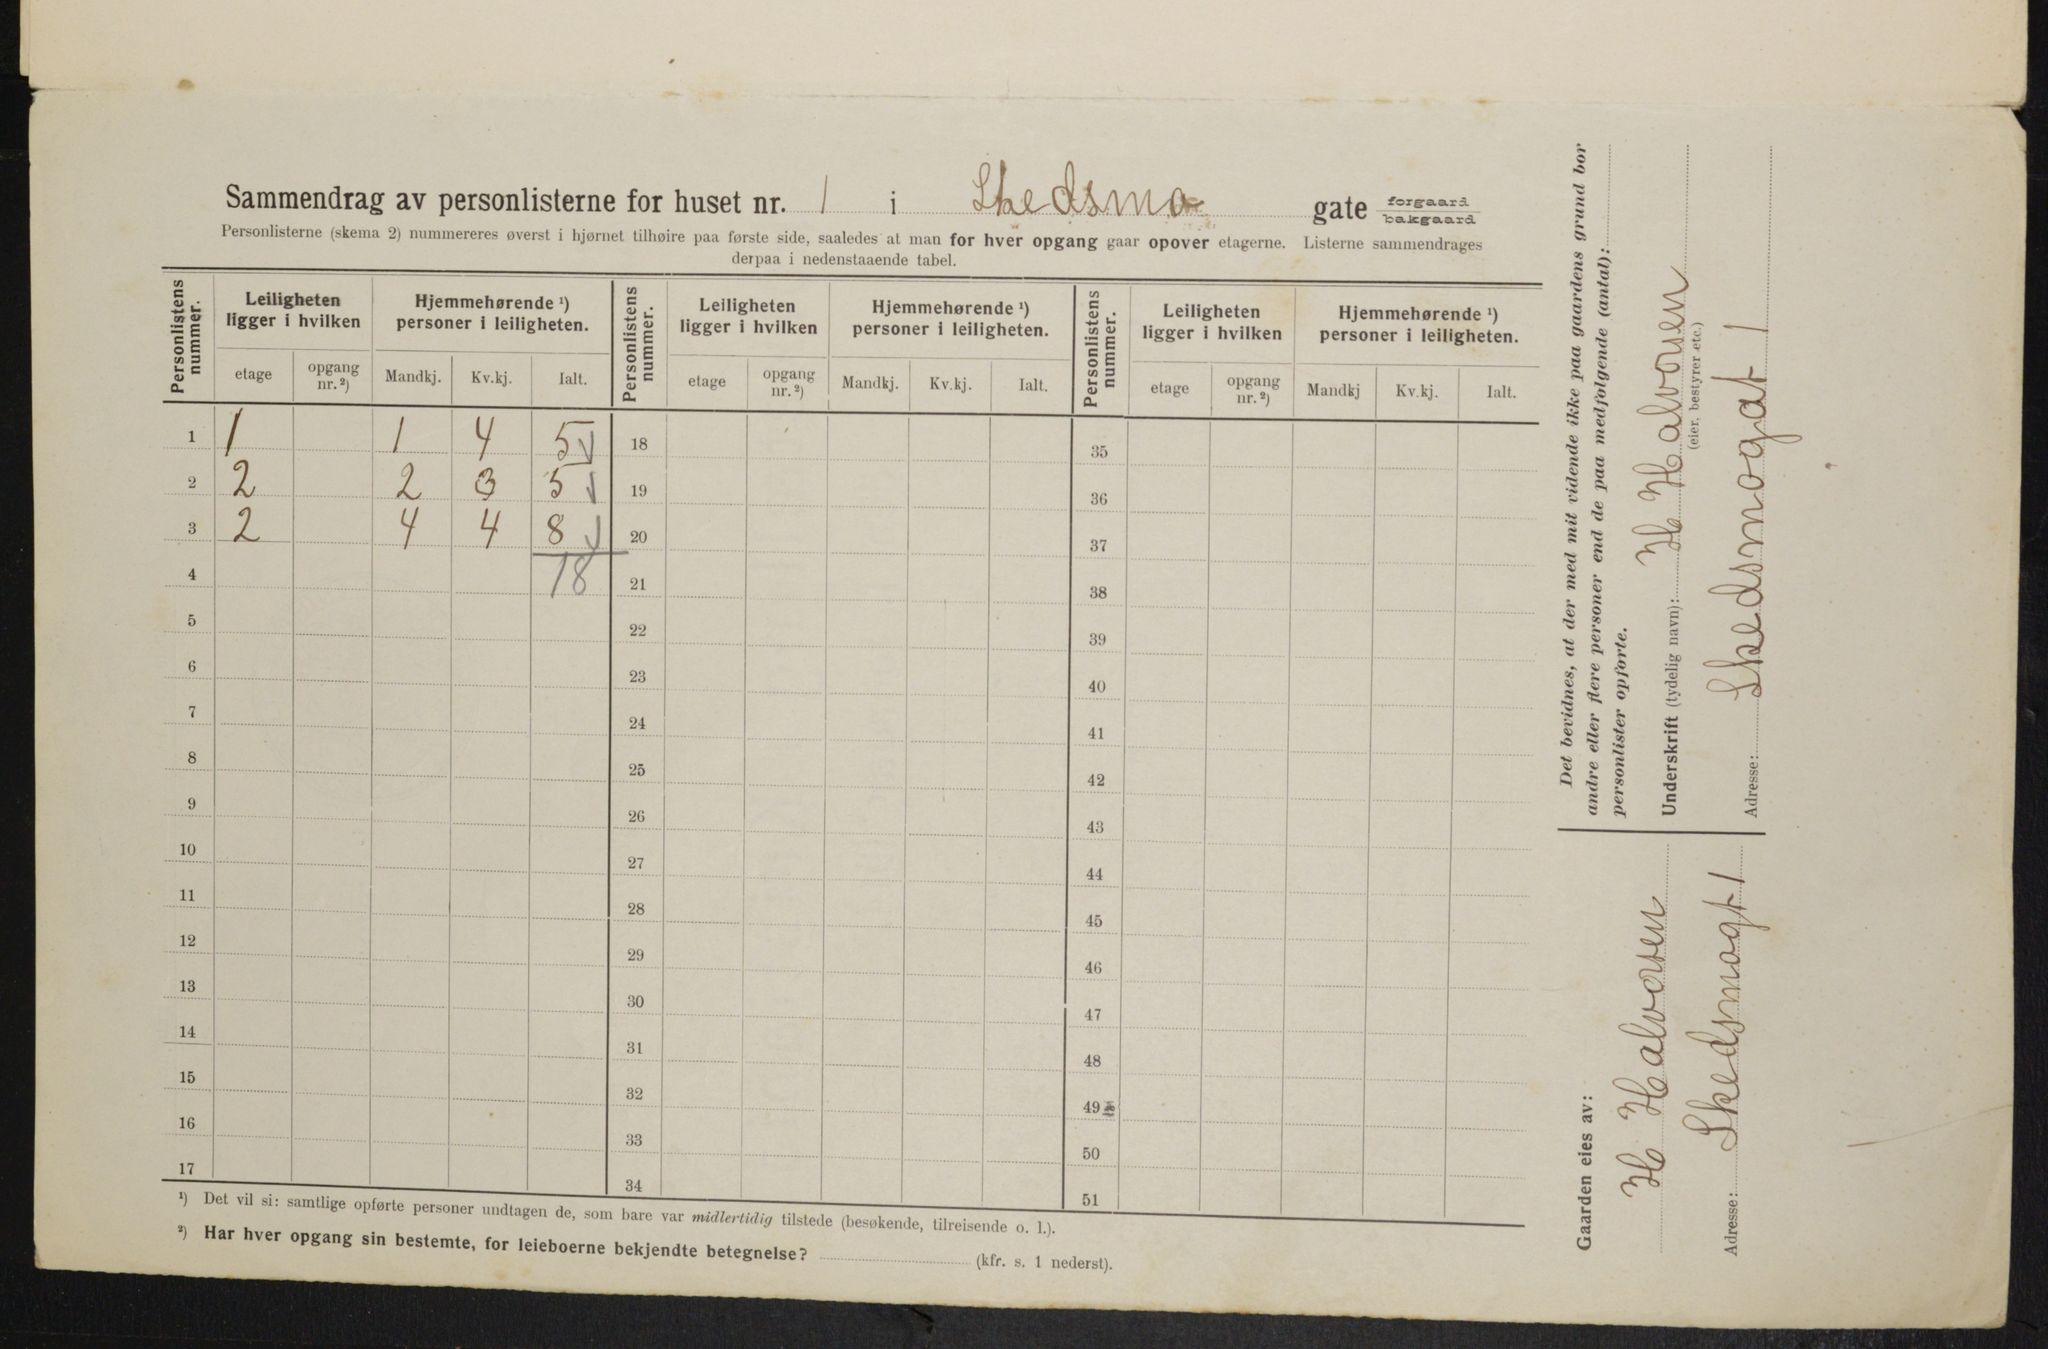 Sammendrag av personlisterne for huset nr. 1 i Skedsmo gate forgaard
bakgaard
Personlisterne (skema 2) nummereres øverst i hjørnet tilhøire paa første side, saaledes at man for hver opgang gaar opover etagerne. Listerne sammendrages
derpaa i nedenstaaende tabel.
Personlistens nummer. Leiligheten ligger i hvilken Hjemmehørende ¹) personer i leiligheten. Personlistens nummer. Leiligheten ligger i hvilken Hjemmehørende ¹) personer i leiligheten. Personlistens nummer. Leiligheten ligger i hvilken Hjemmehørende ¹) personer i leiligheten.
etage opgang nr. ²) Mandkj. Kv.kj. Ialt. etage opgang nr. ²) Mandkj. Kv.kj. Ialt. etage opgang nr. ²) Mandkj Kv.kj. Ialt.
1 1 1 4 5 18 35
2 2 2 3 5 19 36
3 2 4 4 8 20 37
4 18 21 38
5 22 39
6 23 40
7 24 41
8 25 42
9 26 43
10 27 44
11 28 45
12 29 46
13 30 47
14 31 48
15 32 49
16 33 50
17 34 51
¹) Det vil si: samtlige opførte personer undtagen de, som bare var midlertidig tilstede (besøkende, tilreisende o. l.).
²) Har hver opgang sin bestemte, for leieboerne bekjendte betegnelse? (kfr. s. 1 nederst).
Det bevidnes, at der med mit vidende ikke paa gaardens grund bor
andre eller flere personer end de paa medfølgende (antal):
personlister opførte.
Underskrift (tydelig navn): H Halvorsen
(eier, bestyrer etc.)
Adresse: Skedsmogat 1
Gaarden eies av:
H Halvorsen
Adresse: Skedsmogt 1